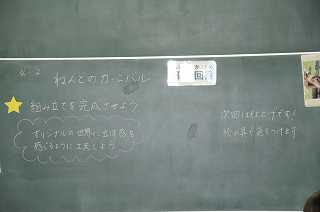 ねんどのカーニバル
組み立てを完成させよう
オリジナルの世界に立体感を
感じるように工夫しよう
回
次回は色つけです!
絵の具で色をつけます